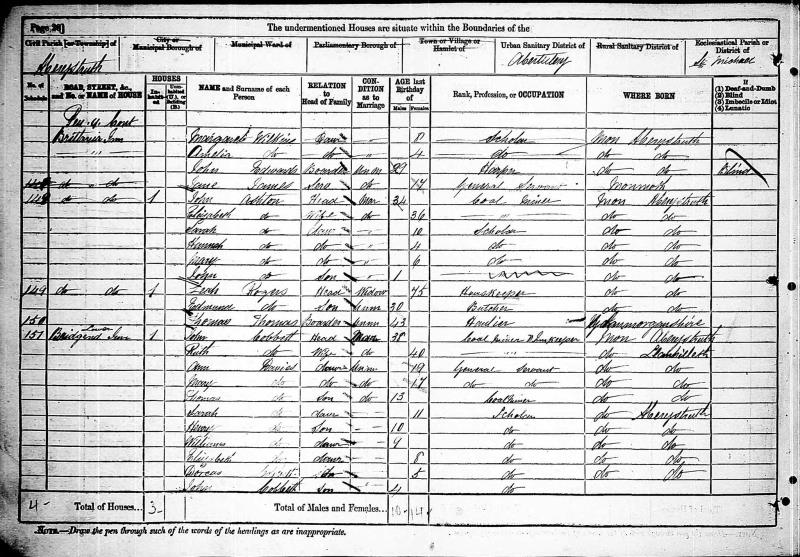 Page 20]
The undermentioned Houses are situate within the Boundaries of the
Civil Parish [or Township] of
City or Municipal Borough of
Municipal Ward of
Parliamentary Borough of
Town or Village or Hamlet of
Urban Sanitary District of
Rural Sanitary District of
Ecclesiastical Parish or District of
Aberystruth
Abertillery
St Michael
No. of Schedule
ROAD, STREET, &c., and No. or NAME of HOUSE
HOUSES
Inhabited
Uninhabited (U.), or Building (B.)
NAME and Surname of each Person
RELATION to Head of Family
CONDITION as to Marriage
AGE last Birthday of
Males
Females
Rank, Profession, or OCCUPATION
WHERE BORN
If
(1) Deaf-and-Dumb
(2) Blind
(3) Imbecile or Idiot
(4) Lunatic
Britannia Inn Margaret Wilkins Daur 8 Scholar Mon Aberystruth
Amelia do do 4 do do do
John Edwards Boarder Unm 29 Harper do do Blind
148 do do Jane James Serv do 17 General Servant Monmouth
148 do do 1 John Ashton Head Mar 34 Coal Miner Mon Aberystruth
Elizabeth do Wife do 36 do do
Sarah do Daur 10 Scholar do do
Hannah do do 4 do do do
Mary do do 6 do do do
John do Son 1 do do
149 do do 1 Leah Rogers Head Widow 75 Housekeeper do do
Edmund do Son Unm 30 Butcher do do
150 Thomas Thomas Boarder Unm 43 Haulier Glamorganshire
151 Bridgend Inn 1 John Cobbett Head Mar 38 Coal Miner & Innkeeper Mon Aberystruth
Ruth do Wife do 40 do Llanhilleth
Ann Davies daur Unm 19 General Servant do do
Mary do do do 17 do do do do
Thomas do Son do 13 Coal Miner do do
Sarah do daur 11 Scholar do Aberystruth
Henry do Son 10 do do do
William do 9 do do do
Elizabeth do daur 8 do do do
Dorcas 5 do do do
John Cobbett Son 4 do
4 Total of Houses... 3 Total of Males and Females... 10 14
NOTE.—Draw the pen through such of the words of the headings as are inappropriate.